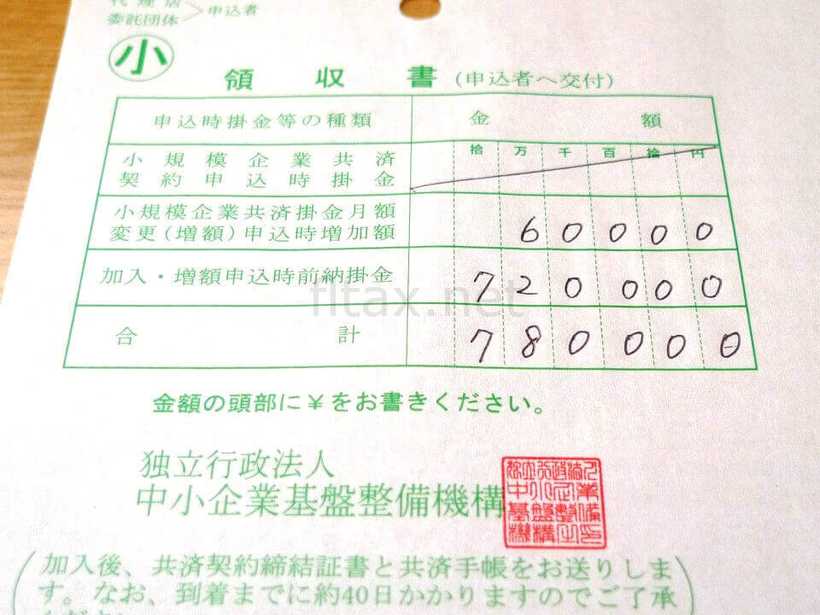 代理店
委託団体
申込者
小
領収書(申込者へ交付)
申込時掛金等の種類 金額
拾万千百拾円
小規模企業共済
契約申込時掛金
小規模企業共済掛金月額
変更(増額)申込時増加額 60000
加入・増額申込時前納掛金 720000
合計 780000
fitax.net
金額の頭部に¥をお書きください。
独立行政法人
中小企業基盤整備機構
加入後、共済契約締結証書と共済手帳をお送りしま
す。なお、到着までに約40日かかりますのでご了承